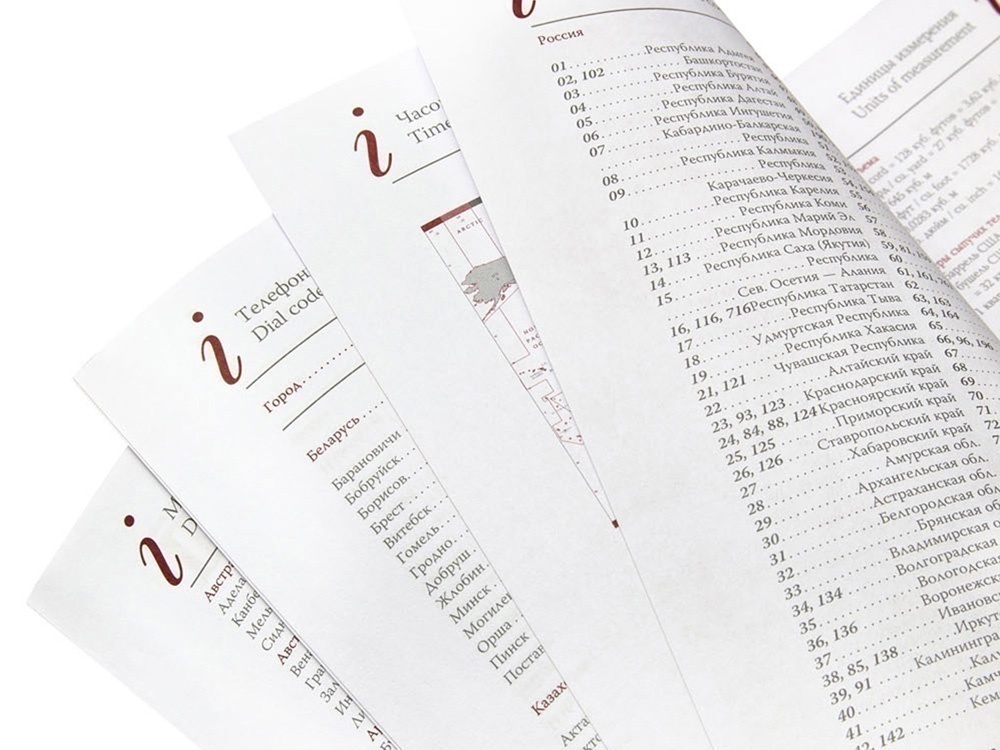 i
М
D
Австра
Аделa
Канбе
Мель
Сидн
Авст
Вен
Гра
Зал
Ин
Ли
i
Телефон
Dial code
Город
Беларусь
Барановичи
Бобруйск
Борисов
Брест
Витебск
Гомель
Гродно
Добруш
Жлобин
Минск
Могилев
Орша
Пинск
Постав
Казах
Акта
i
Часо
Time
ARCTIC
i
Россия
01 Республика Адыгея
02, 102 Башкортостан
03 Республика Бурятия
04 Республика Алтай
05 Республика Дагестан
06 Республика Ингушетия
07 Кабардино-Балкарская
Республика
08 Республика Калмыкия
09 Республика
Карачаево-Черкесия
10 Республика Карелия
11 Республика Коми
12 Республика Марий Эл
13, 113 Республика Мордовия
14 Республика Саха (Якутия)
15 Республика
Сев. Осетия — Алания
16, 116, 716 Республика Татарстан
17 Республика Тыва
18 Удмуртская Республика
19 Республика Хакасия
21, 121 Чувашская Республика
22 Алтайский край
23, 93, 123 Краснодарский край
24, 84, 88, 124 Красноярский край
25, 125 Приморский край
26, 126 Ставропольский край
27 Хабаровский край
28 Амурская обл.
29 Архангельская обл.
30 Астраханская обл.
31 Белгородская обл
32 Брянская об
33 Владимирская о
34, 134 Волгоградская
35 Вологодская
36, 136 Воронежск
37 Ивановс
38, 85, 138 Иркут
39, 91 Калинингра
40 Калу
41 Камч
42, 142 Кем
56
57
58
59, 81
60
61, 161
62
63, 163
64, 164
65
66, 96, 196
67
68
69
70
71
72
Единицы измерения
Units of measurement